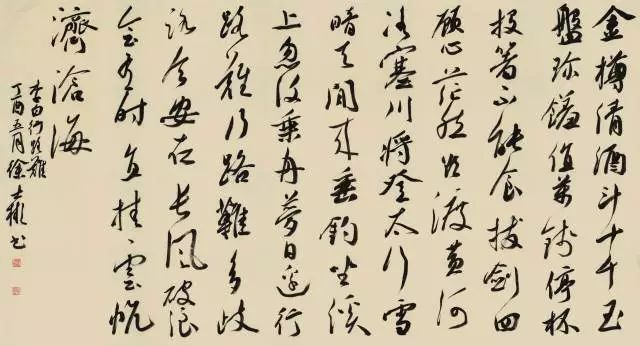 金樽清酒斗十千玉
盤珍饈值萬錢停杯
投箸不能食拔劍四
顧心茫然欲渡黃河
冰塞川將登太行雪
暗天閒来垂釣坐溪
上忽復乘舟夢日邊行
路難行路難多歧
路今安在長風破浪
會有時直挂雲帆
濟滄海
李白行路難
丁酉五月徐書